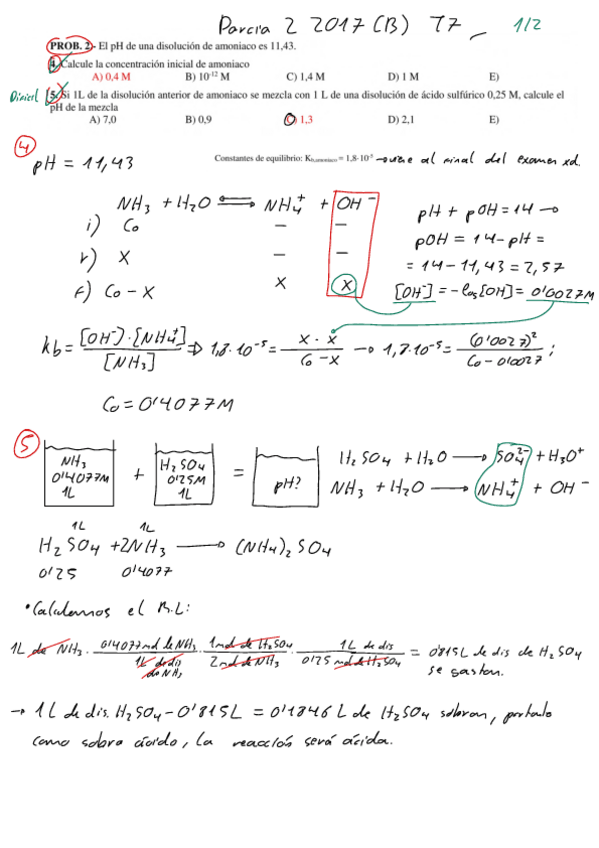 Parcia 2 2017 (B) T7_ 1/2
PROB. 2.- El pH de una disolución de amoniaco es 11,43.
4. Calcule la concentración inicial de amoniaco
A) 0,4 M B) 10⁻¹² M C) 1,4 M D) 1 M E)
5. Si 1L de la disolución anterior de amoniaco se mezcla con 1 L de una disolución de ácido sulfúrico 0,25 M, calcule el
pH de la mezcla
A) 7,0 B) 0,9 C) 1,3 D) 2,1 E)
4
pH = 11,43
Constantes de equilibrio: Kb,amoniaco = 1,8·10⁻⁵ → viene al final del examen xd.
NH₃ + H₂O ⇌ NH₄⁺ + OH⁻
i) Co — —
r) X — —
f) Co - X X X
pH + pOH = 14 →
pOH = 14 - pH =
= 14 - 11,43 = 2,57
[OH⁻] = -log[OH] = 0'0027M
kb = [OH⁻]·[NH₄⁺] / [NH₃] ⇒ 1,8·10⁻⁵ = x · x / Co - x → 1,8·10⁻⁵ = (0'0027)² / Co - 0'0027 ;
Co = 0'4077M
5
NH₃ 0'4077M 1L + H₂SO₄ 0'25M 1L = pH?
H₂SO₄ + H₂O → SO₄²⁻ + H₃O⁺
NH₃ + H₂O → NH₄⁺ + OH⁻
1L 1L
H₂SO₄ + 2NH₃ → (NH₄)₂SO₄
0'25 0'4077
• Calculamos el R.L:
1L de NH₃ · 0'4077 mol de NH₃ / 1L de dis de NH₃ · 1 mol de H₂SO₄ / 2 mol de NH₃ · 1L de dis / 0'25 mol de H₂SO₄ = 0'815L de dis de H₂SO₄
se gastan.
→ 1L de dis. H₂SO₄ - 0'815L = 0'1846 L de H₂SO₄ sobran, portanto
como sobra ácido, la reacción será ácida.